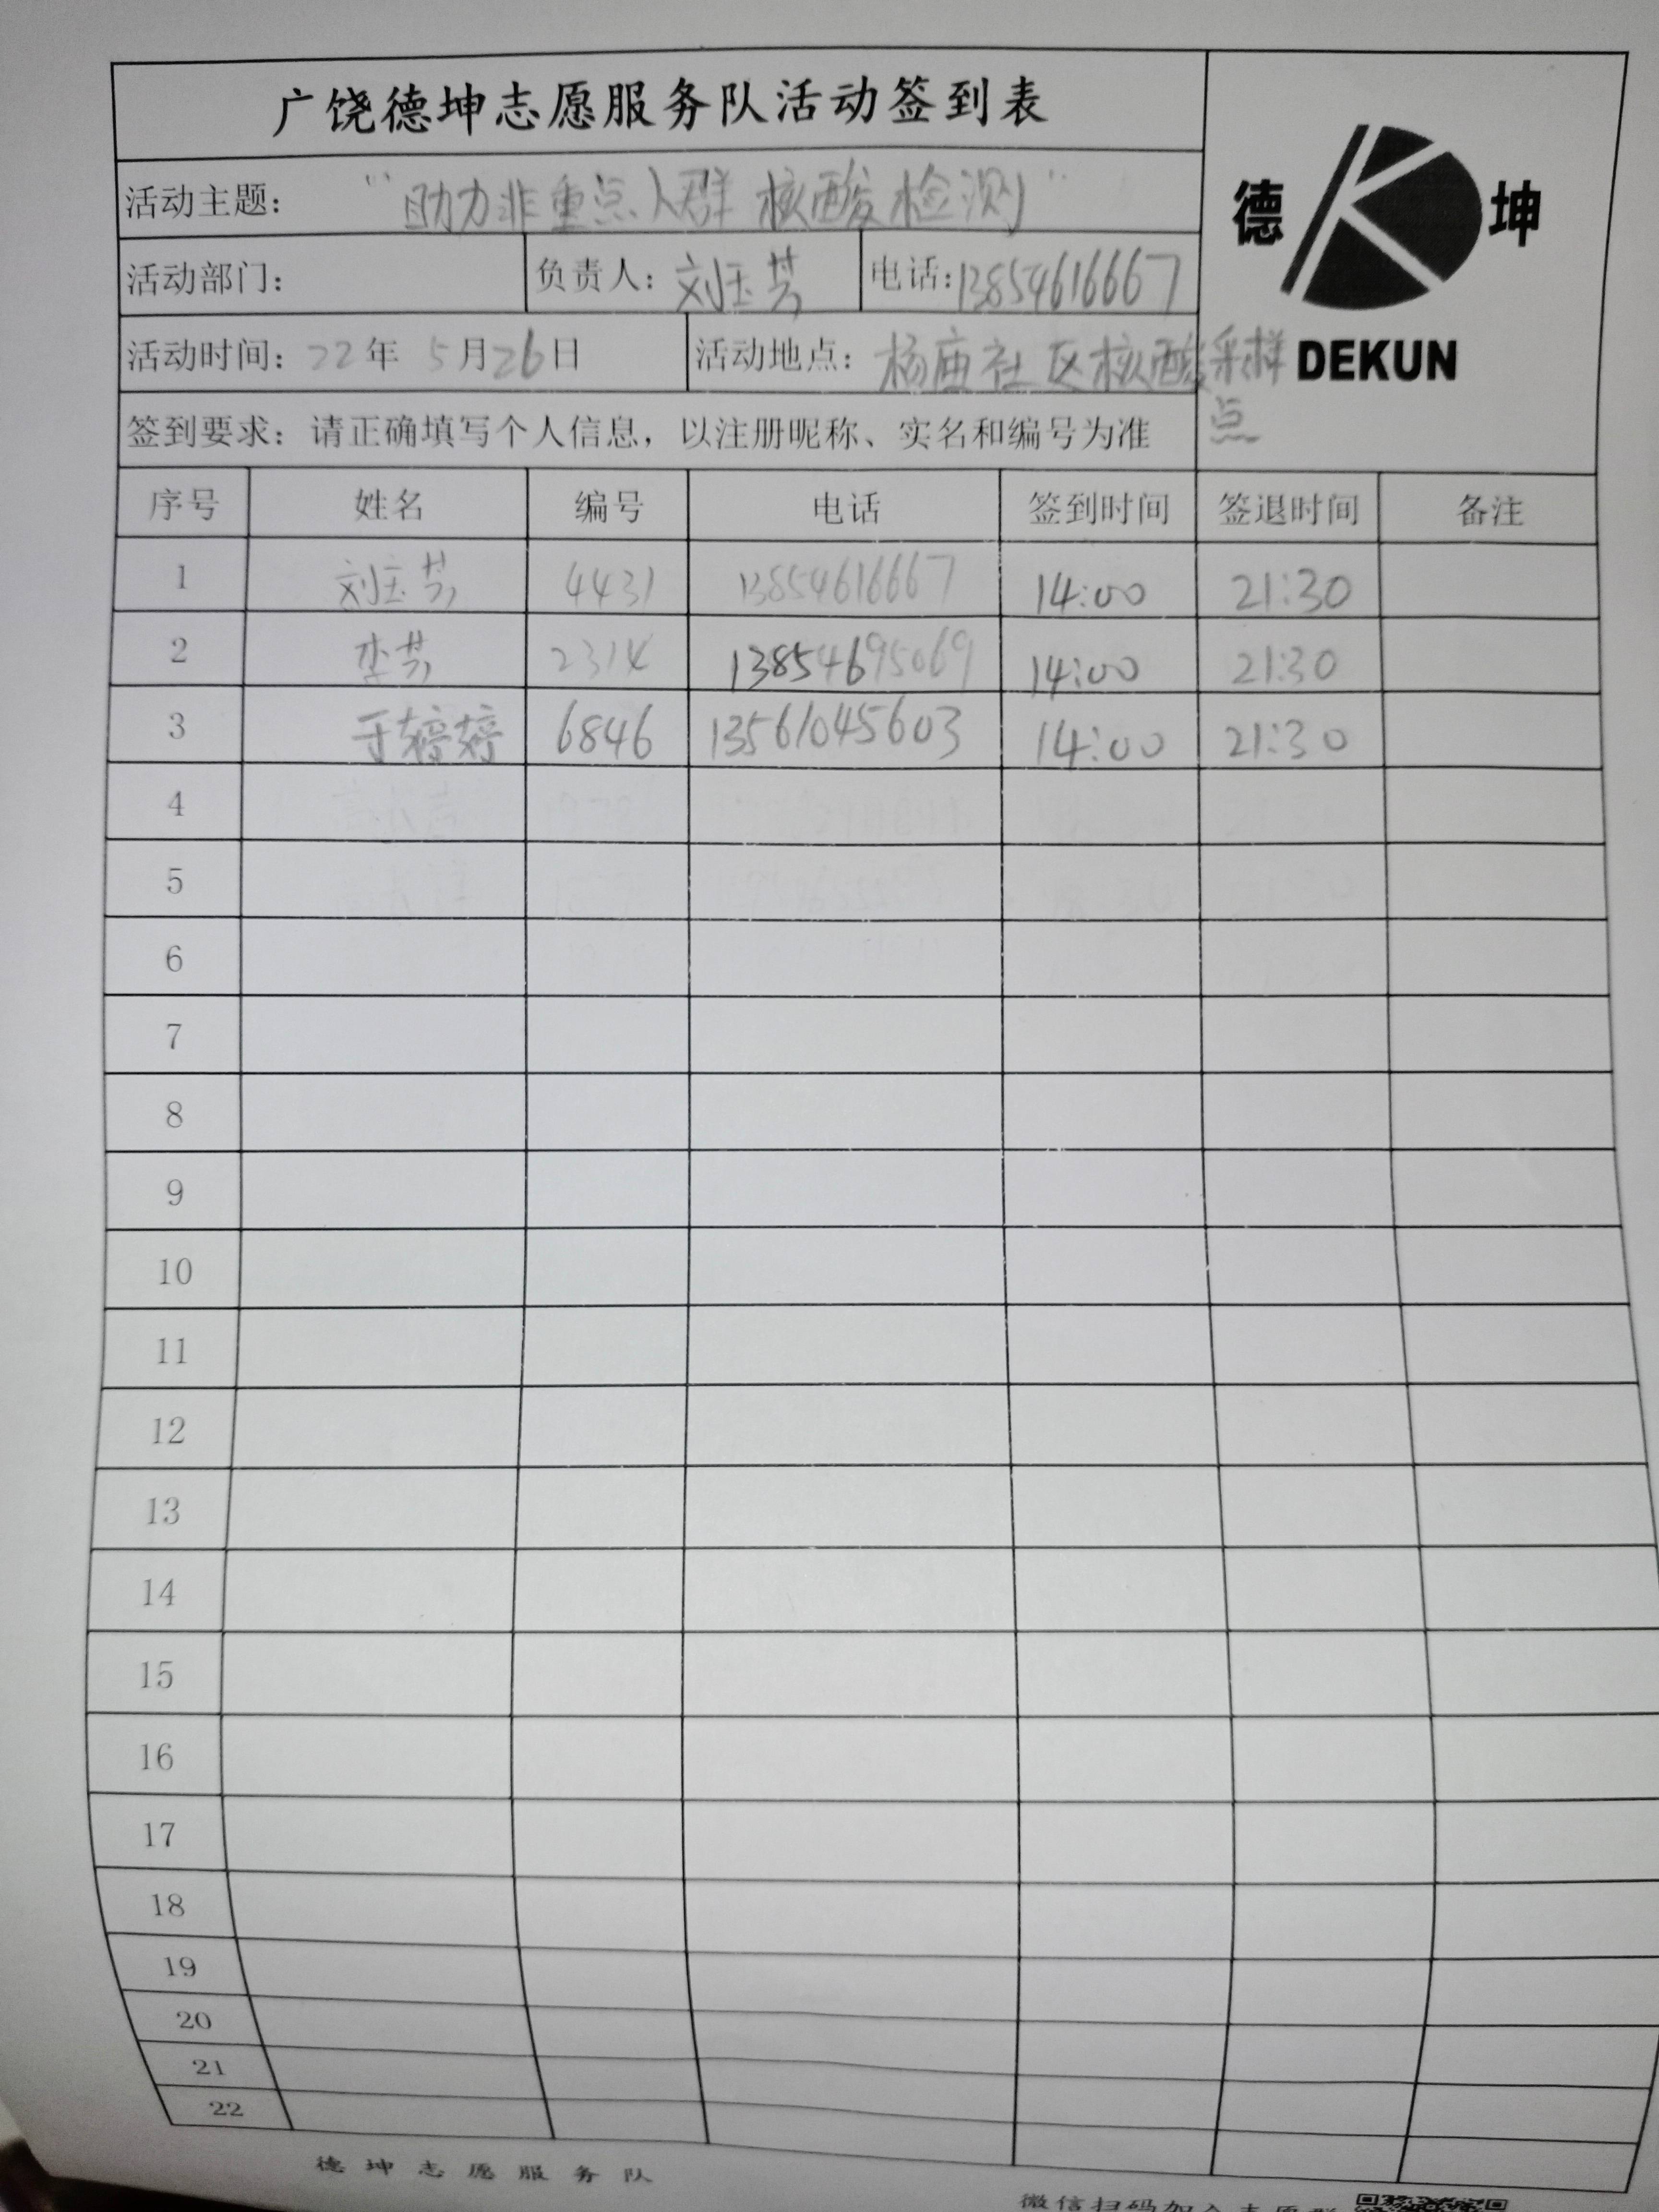 广饶德坤志愿服务队活动签到表
德 坤
DEKUN
活动主题： “助力非重点人群核酸检测”
活动部门： 负责人：刘玉芳 电话：13854616667
活动时间：22年 5月26日 活动地点：杨庙社区核酸采样点
签到要求：请正确填写个人信息，以注册昵称、实名和编号为准
序号 姓名 编号 电话 签到时间 签退时间 备注
1 刘玉芳 4431 13854616667 14:00 21:30
2 李芳 2314 13854695069 14:00 21:30
3 于婷婷 6846 13561045603 14:00 21:30
4
5
6
7
8
9
10
11
12
13
14
15
16
17
18
19
20
21
22
德坤志愿服务队
微信扫码加入志愿群